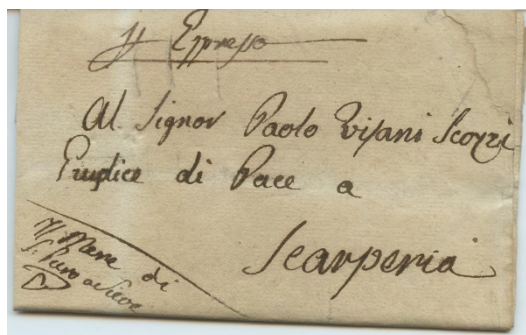 Espresso
Al Signor Paolo Visani Scozzi
Giudice di Pace a
Scarperia
Il Mere di
S. Piero a Sieve